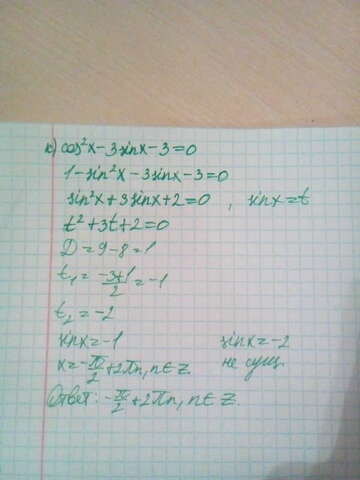 к) cos²x-3sinx-3=0
1-sin²x-3sinx-3=0
sin²x+3sinx+2=0, sinx=t
t²+3t+2=0
D=9-8=1
t₁=(-3+1)/2=-1
t₂=-2
sinx=-1 sinx=-2
x=-π/2+2πn, n∈Z не сущ.
Ответ: -π/2+2πn, n∈Z.